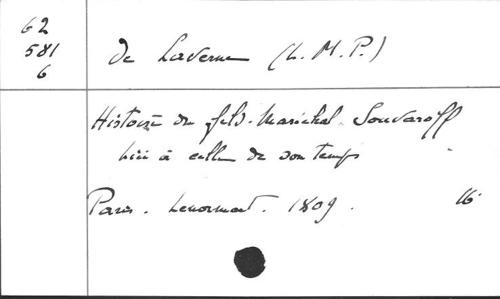 62
581
6
de Laverne (L. M. P.)
Histoire du feld-Maréchal Souvaroff
liée à celle de son temps
Paris. Lenormant. 1809. 16